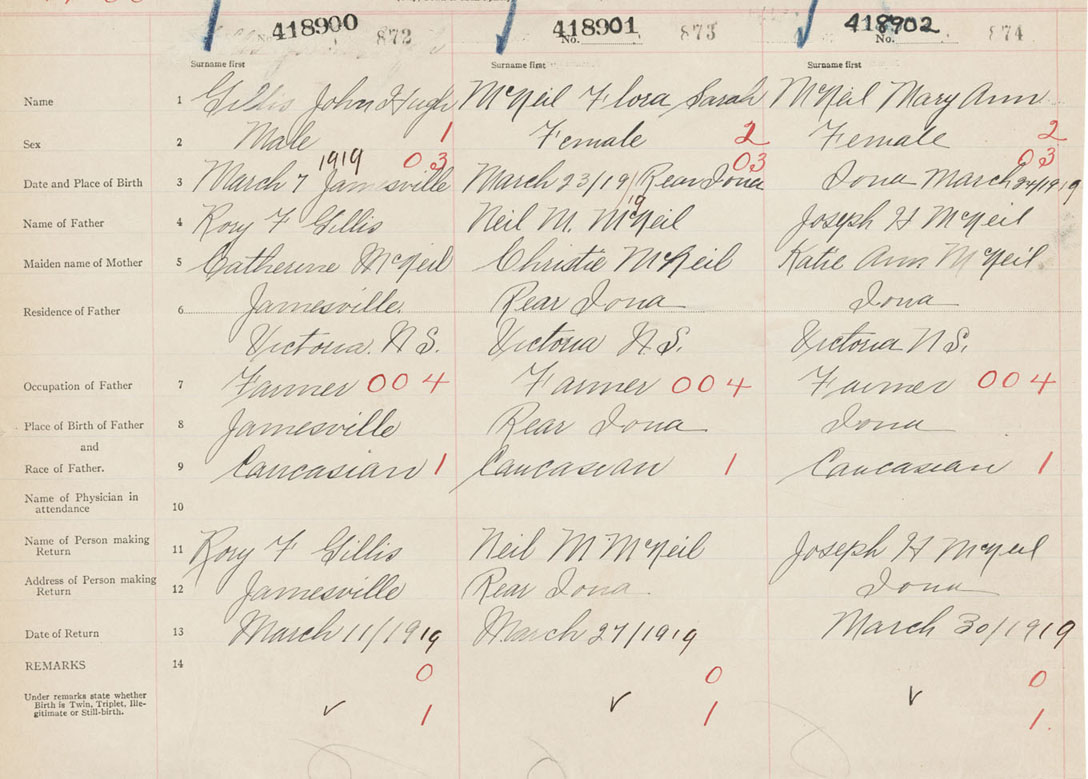 418900 872 No. 418901 873 No. 418902 874
Surname first Surname first Surname first
Name 1 Gillis John Hugh McNeil Flora Sarah McNeil Mary Ann
Sex 2 Male 1 Female 2 Female 2
1919 03 03 03
Date and Place of Birth 3 March 7 Jamesville March 23/19 Rear Iona Iona March 24/1919
19
Name of Father 4 Rory F Gillis Neil M. McNeil Joseph H McNeil
Maiden name of Mother 5 Catherine McNeil Christie McNeil Katie Ann McNeil
Residence of Father 6 Jamesville. Rear Iona Iona
Victoria. N S. Victoria N S. Victoria N S.
Occupation of Father 7 Farmer 004 Farmer 004 Farmer 004
Place of Birth of Father 8 Jamesville Rear Iona Iona
and
Race of Father. 9 Caucasian 1 Caucasian 1 Caucasian 1
Name of Physician in
attendance 10
Name of Person making
Return 11 Rory F Gillis Neil M McNeil Joseph H McNeil
Address of Person making
Return 12 Jamesville Rear Iona Iona
Date of Return 13 March 11/1919 March 27/1919 March 30/1919
REMARKS 14 0 0 0
Under remarks state whether
Birth is Twin, Triplet, Ille-
gitimate or Still-birth. 1 1 1.